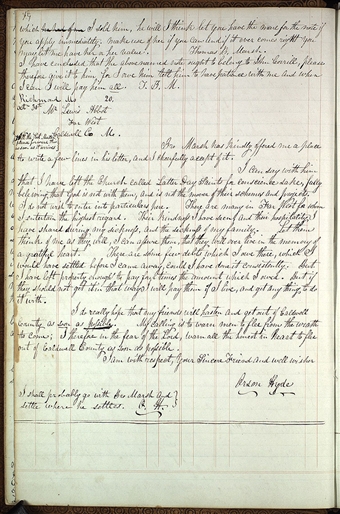 which I sold him, he will I think let you have the mare for the note if
you apply immediately; make use of her if you can and if it ever comes right you
may let me have her or her value. Thomas B. Marsh.
I have concluded that the above named note ought to belong to John Corrill, please
therefore give it to him, for I owe him tell him to have patience with me and when
I can I will pay him all. T. B. M.
Richmond Mo. 20.
Oct 30th Mr. Lewis Abbot
Far West
Caldwell Co Mo.
Bro Marsh has kindly offered me a place
to write a few lines in his letter, and I cheerfully accept of it.
I can say with him
that I have left the Church called Latter Day Saints for conscience sake, fully
believing that God is not with them, and is not the mover of their schemes and projects.
I do not wish to enter into particulars here. There are many in Far West for whom
I entertain the highest regard. Their kindness I have seen and their hospitality I
have shared during my sickness, and the sickness of my family. Let them
think of me as they will, I can assure them, that they will ever live in the memory of
a grateful heart. There are some few debts which I owe there, which I
would have settled before I came away, could I have done it consistently. But
I have left property enough to pay four times the amount which I owed. But if
they should not get it in that way I will pay them if I live, and get any thing to do
it with.
I do really hope that my friends will hasten and get out of Caldwell
County, as soon as possible. My calling is to warn men to flee from the wrath
to come; I therefore in the fear of the Lord, warn all the honest in heart to flee
out of Caldwell County as soon as possible.
I am with respect, Your Sincere Friend and well wisher
Orson Hyde
I shall probably go with Bro Marsh and
settle where he settles. O. H.